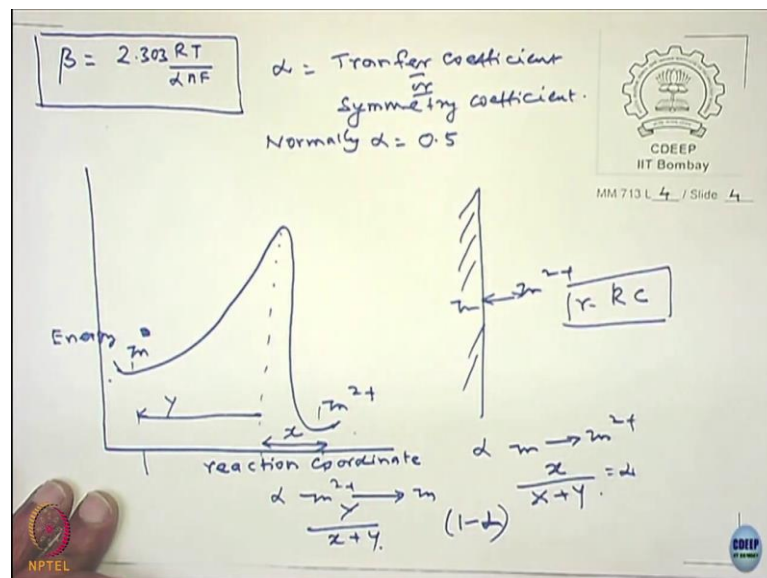 β = 2.303 RT / αnF
α = Tranfer coefficient
or
Symmetry coefficient.
Normally α = 0.5
CDEEP
IIT Bombay
MM 713 L 4 / Slide 4
Energy
m°
m²⁺
y
x
reaction coordinate
m
m²⁺
r - RC
α m → m²⁺
x / x+y = α
α m²⁺ → m
y / x+y.
(1-α)
NPTEL
CDEEP
IIT BOMBAY